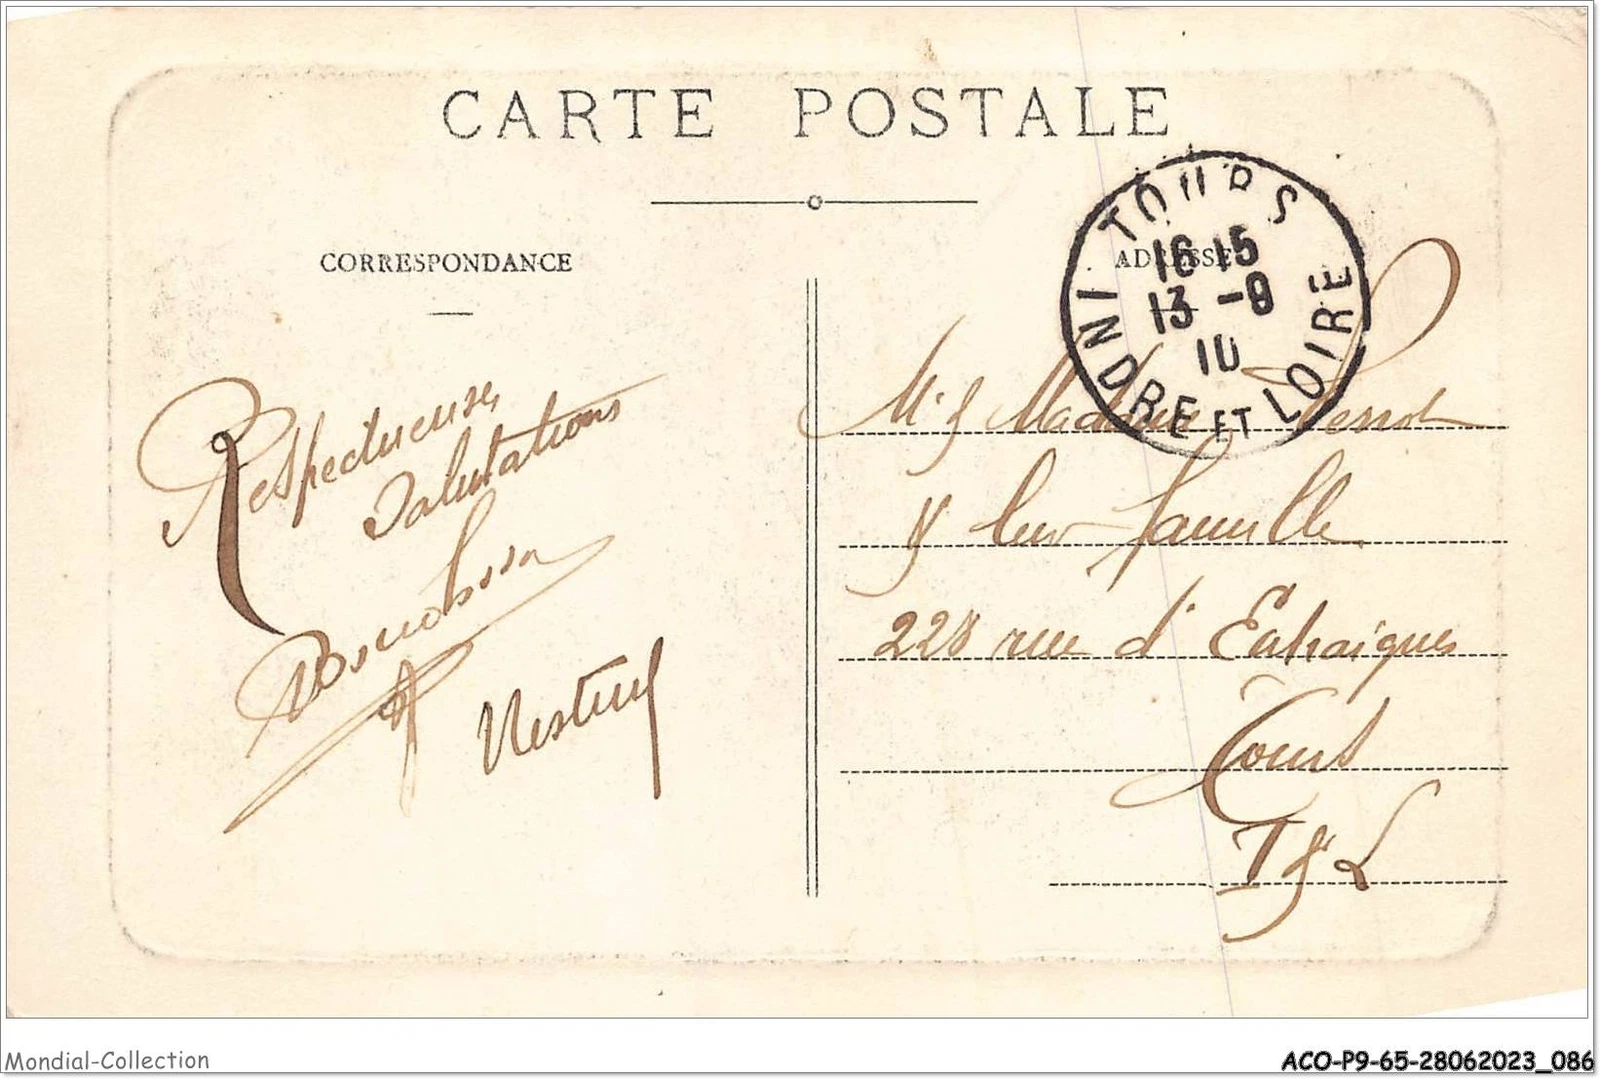 CARTE POSTALE
CORRESPONDANCE
ADRESSE
TOURS
16 15
13 -9
10
INDRE ET LOIRE
Respectueuses
Salutations
Mr & Madame
& leur famille
228 rue d'Entraigues
Tours
I & L
Mondial-Collection
ACO-P9-65-28062023_086